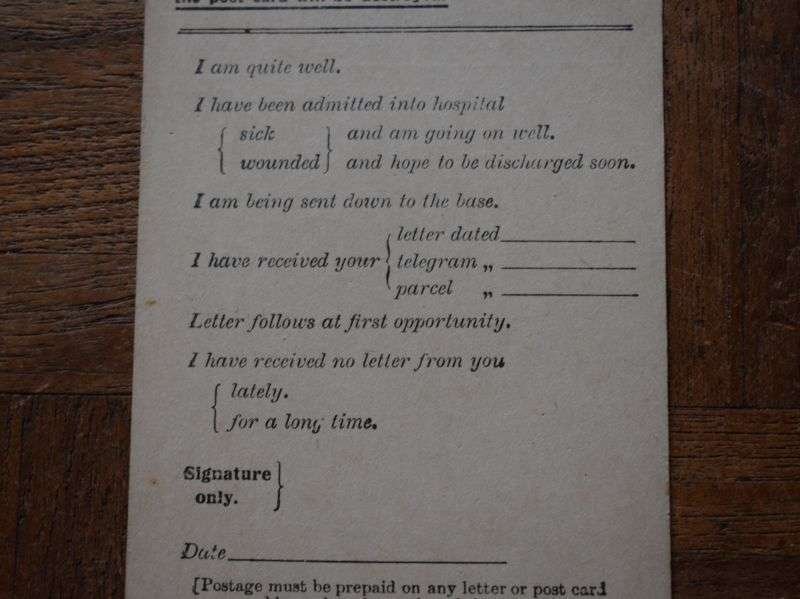 the post card will be destroyed.
I am quite well.
I have been admitted into hospital
{ sick } and am going on well.
{ wounded } and hope to be discharged soon.
I am being sent down to the base.
I have received your { letter dated
telegram „
parcel „
Letter follows at first opportunity.
I have received no letter from you
{ lately.
for a long time.
Signature
only. }
Date
[Postage must be prepaid on any letter or post card